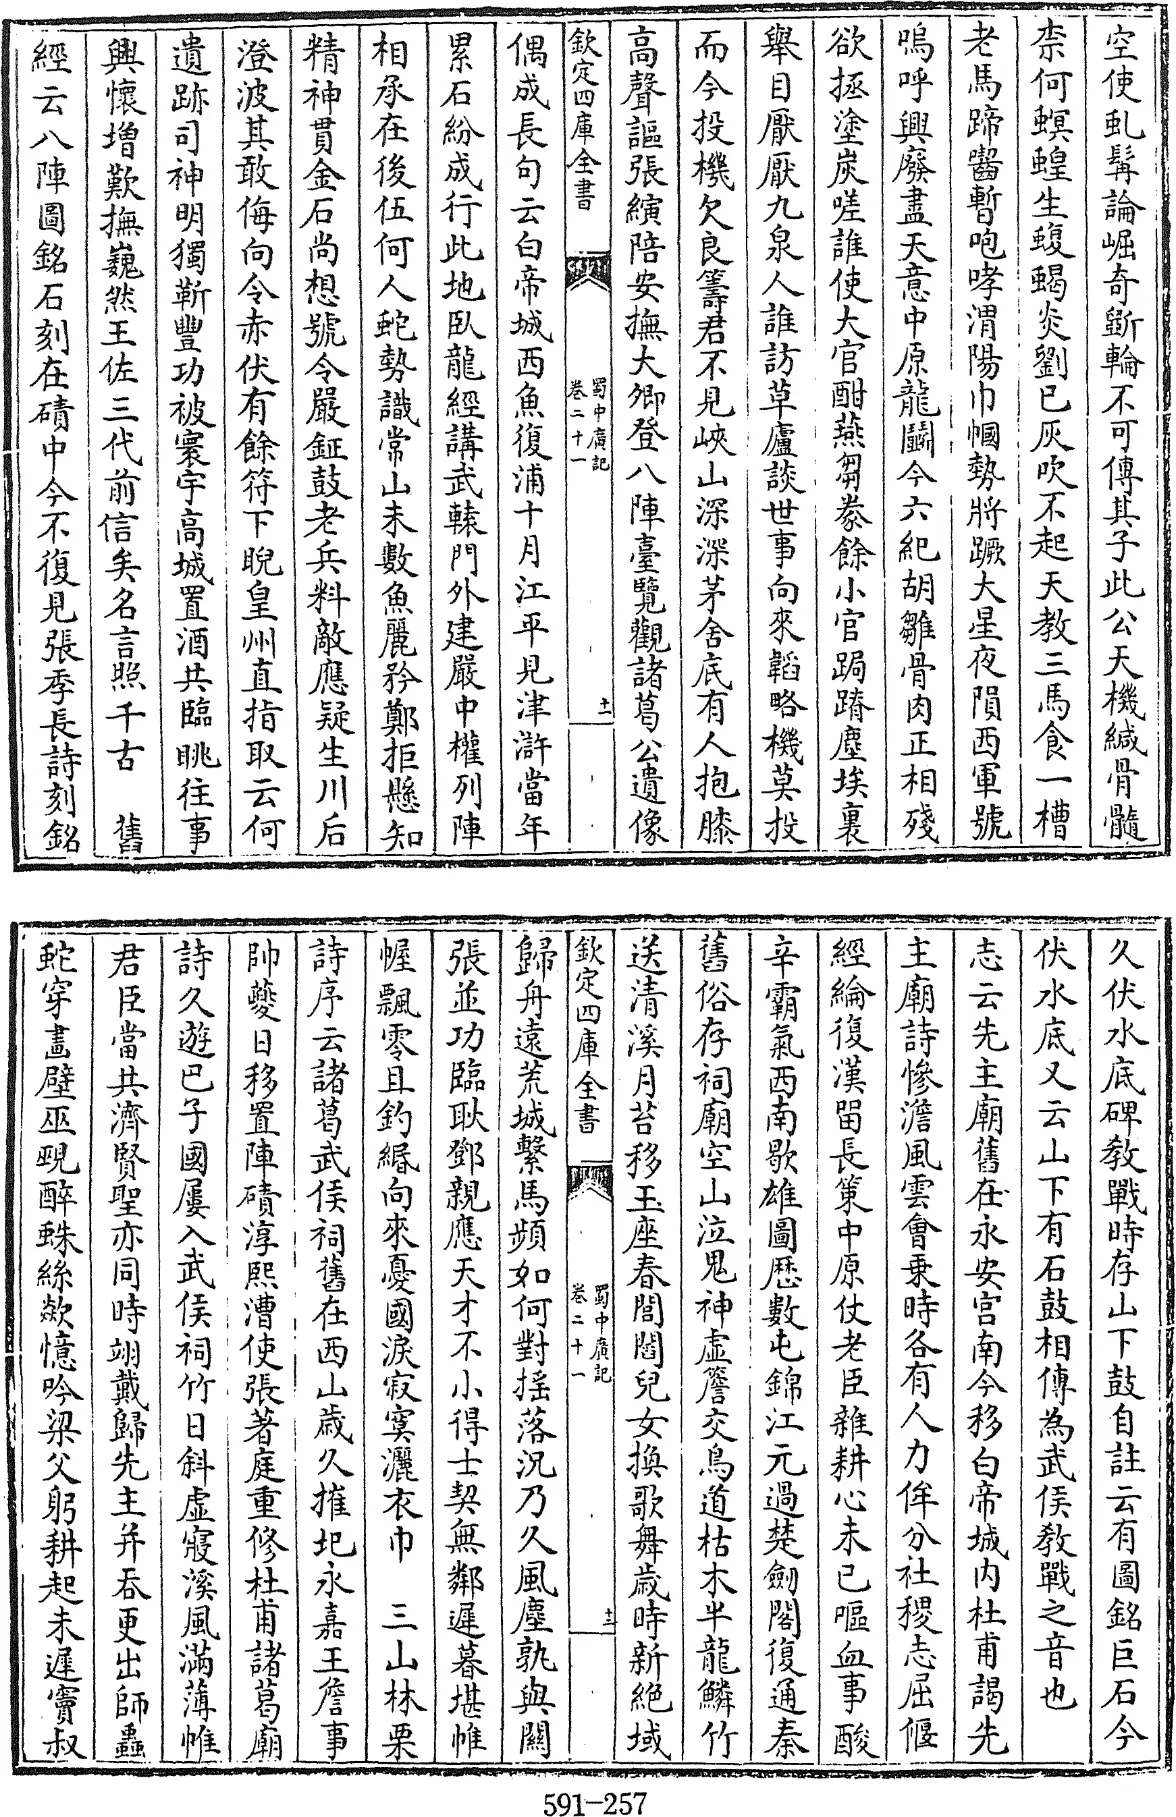 空使虬髯論崛奇斵輪不可傳其子此公天機緘骨髓
柰何螟蝗生蝮蝎炎劉已灰吹不起天教三馬食一槽
老馬蹄齧暫咆哮渭陽巾幗勢將蹶大星夜隕西軍號
嗚呼興廢盡天意中原龍鬬今六紀胡雛骨肉正相殘
欲拯塗炭嗟誰使大官酣燕芻豢餘小官跼蹐塵埃裏
舉目厭厭九泉人誰訪草廬談世事向來韜略機莫投
而今投機欠良籌君不見峽山深深茅舍底有人抱膝
高聲謳張縯陪安撫大卿登八陣臺覽觀諸葛公遺像
欽定四庫全書
蜀中廣記
卷二十一
十一
偶成長句云白帝城西魚復浦十月江平見津滸當年
累石紛成行此地臥龍經講武轅門外建嚴中權列陣
相承在後伍何人蛇勢識常山未數魚麗矜鄭拒懸知
精神貫金石尚想號令嚴鉦鼓老兵料敵應疑生川后
澄波其敢侮向令赤伏有餘符下睨皇州直指取云何
遺跡司神明獨靳豐功被寰宇高城置酒共臨眺往事
興懷增歎撫巍然王佐三代前信矣名言照千古　舊
經云八陣圖銘石刻在磧中今不復見張季長詩刻銘
久伏水底碑敎戰時存山下鼓自註云有圖銘巨石今
伏水底又云山下有石鼓相傳為武侯敎戰之音也
志云先主廟舊在永安宫南今移白帝城内杜甫謁先
主廟詩慘澹風雲會乗時各有人力侔分社稷志屈偃
經綸復漢留長策中原仗老臣雜耕心未已嘔血事酸
辛霸氣西南歇雄圖歴數屯錦江元過楚劒閣復通秦
舊俗存祠廟空山泣鬼神虛簷交鳥道枯木半龍鱗竹
送清溪月苔移玉座春閭閻兒女換歌舞歲時新絕域
欽定四庫全書
蜀中廣記
卷二十一
十二
歸舟遠荒城繫馬頻如何對搖落況乃久風塵孰與關
張並功臨耿鄧親應天才不小得士契無鄰遲暮堪帷
幄飄零且釣緡向來憂國淚寂寞灑衣巾　三山林栗
詩序云諸葛武侯祠舊在西山歲久摧圯永嘉王詹事
帥夔日移置陣磧淳熙漕使張著庭重修杜甫諸葛廟
詩久遊巴子國屢入武侯祠竹日斜虛寢溪風滿薄帷
君臣當共濟賢聖亦同時翊戴歸先主并吞更出師蟲
蛇穿畫壁巫覡醉蛛絲歘憶吟梁父躬耕起未遲竇叔
591-257